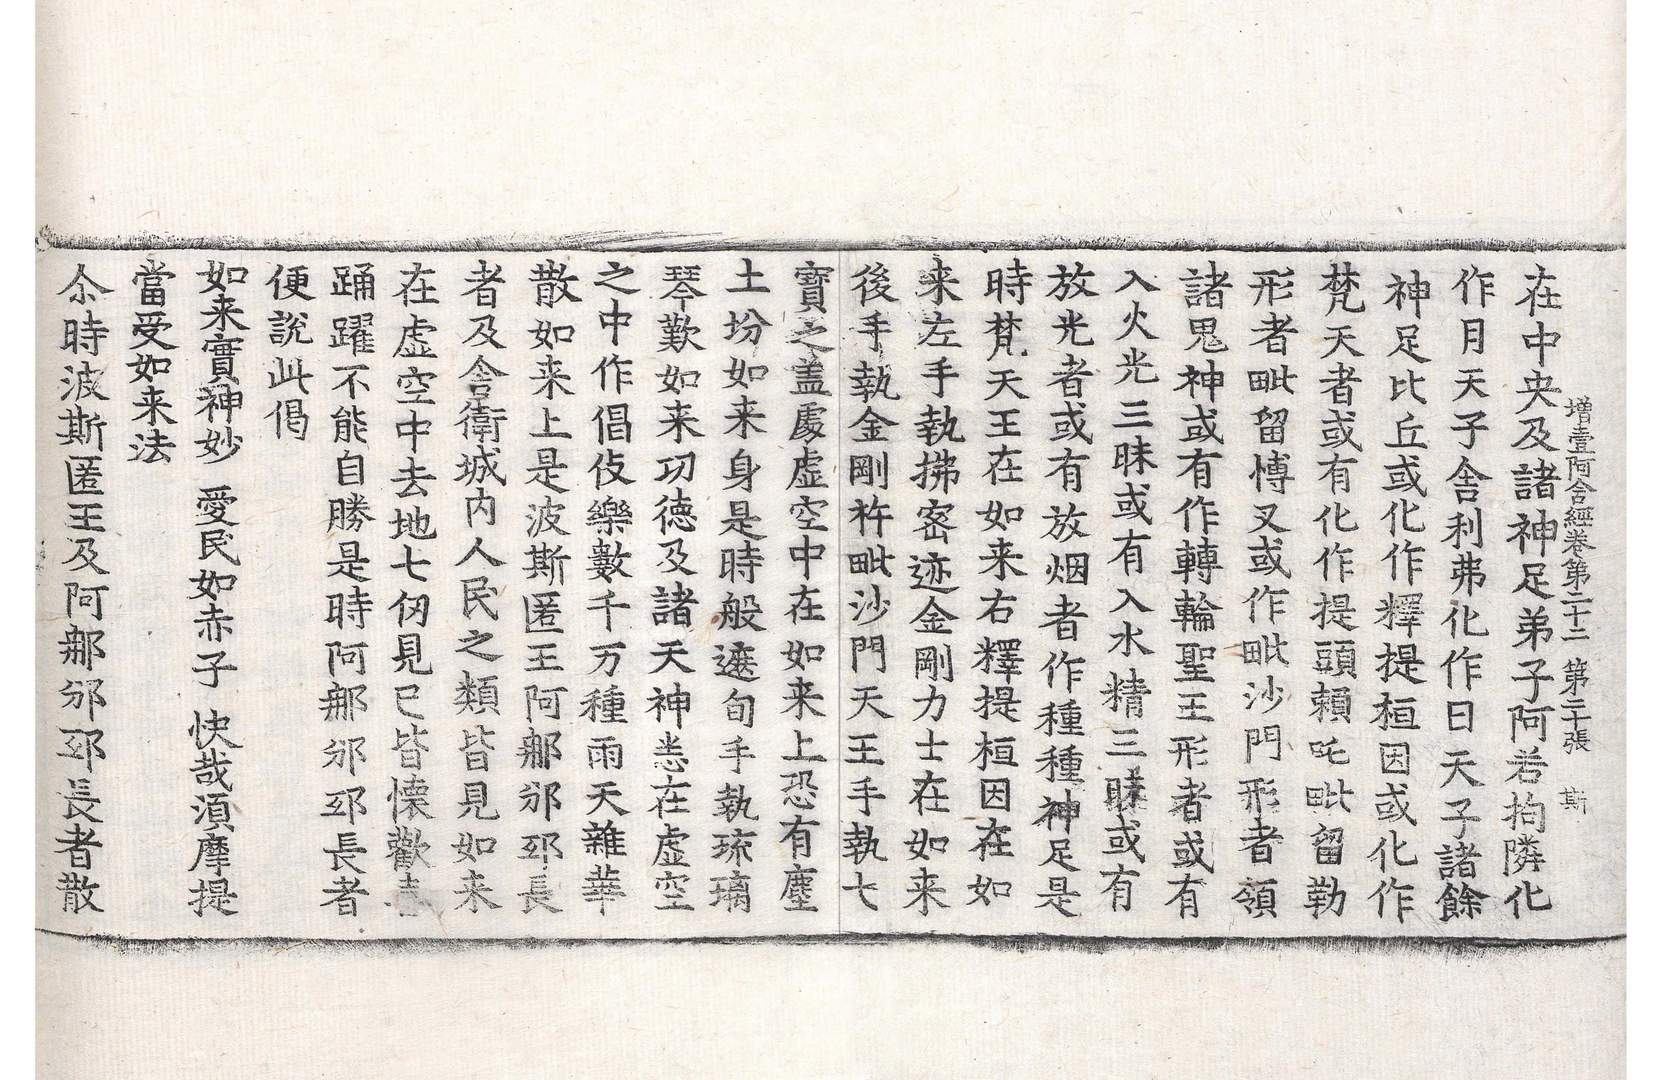 增壹阿含經卷第二十二 第二十張 斯
在中央及諸神足弟子阿若拘隣化
作月天子舍利弗化作日天子諸餘
神足比丘或化作釋提桓因或化作
梵天者或有化作提頭賴吒毗留勒
形者毗留博叉或作毗沙門形者領
諸鬼神或有作轉輪聖王形者或有
入火光三昧或有入水精三昧或有
放光者或有放烟者作種種神足是
時梵天王在如来右釋提桓因在如
来左手執拂密迹金剛力士在如来
後手執金剛杵毗沙門天王手執七
寶之盖處虛空中在如来上恐有塵
土坋如来身是時般遮旬手執琉璃
琴歎如来功德及諸天神悉在虛空
之中作倡伎樂數千万種雨天雜華
散如来上是波斯匿王阿那邠邸長
者及舍衛城內人民之類皆見如来
在虛空中去地七仞見已皆懷歡喜
踊躍不能自勝是時阿那邠邸長者
便說此偈
如来實神妙 愛民如赤子 快哉須摩提
當受如来法
尒時波斯匿王及阿那邠邸長者散